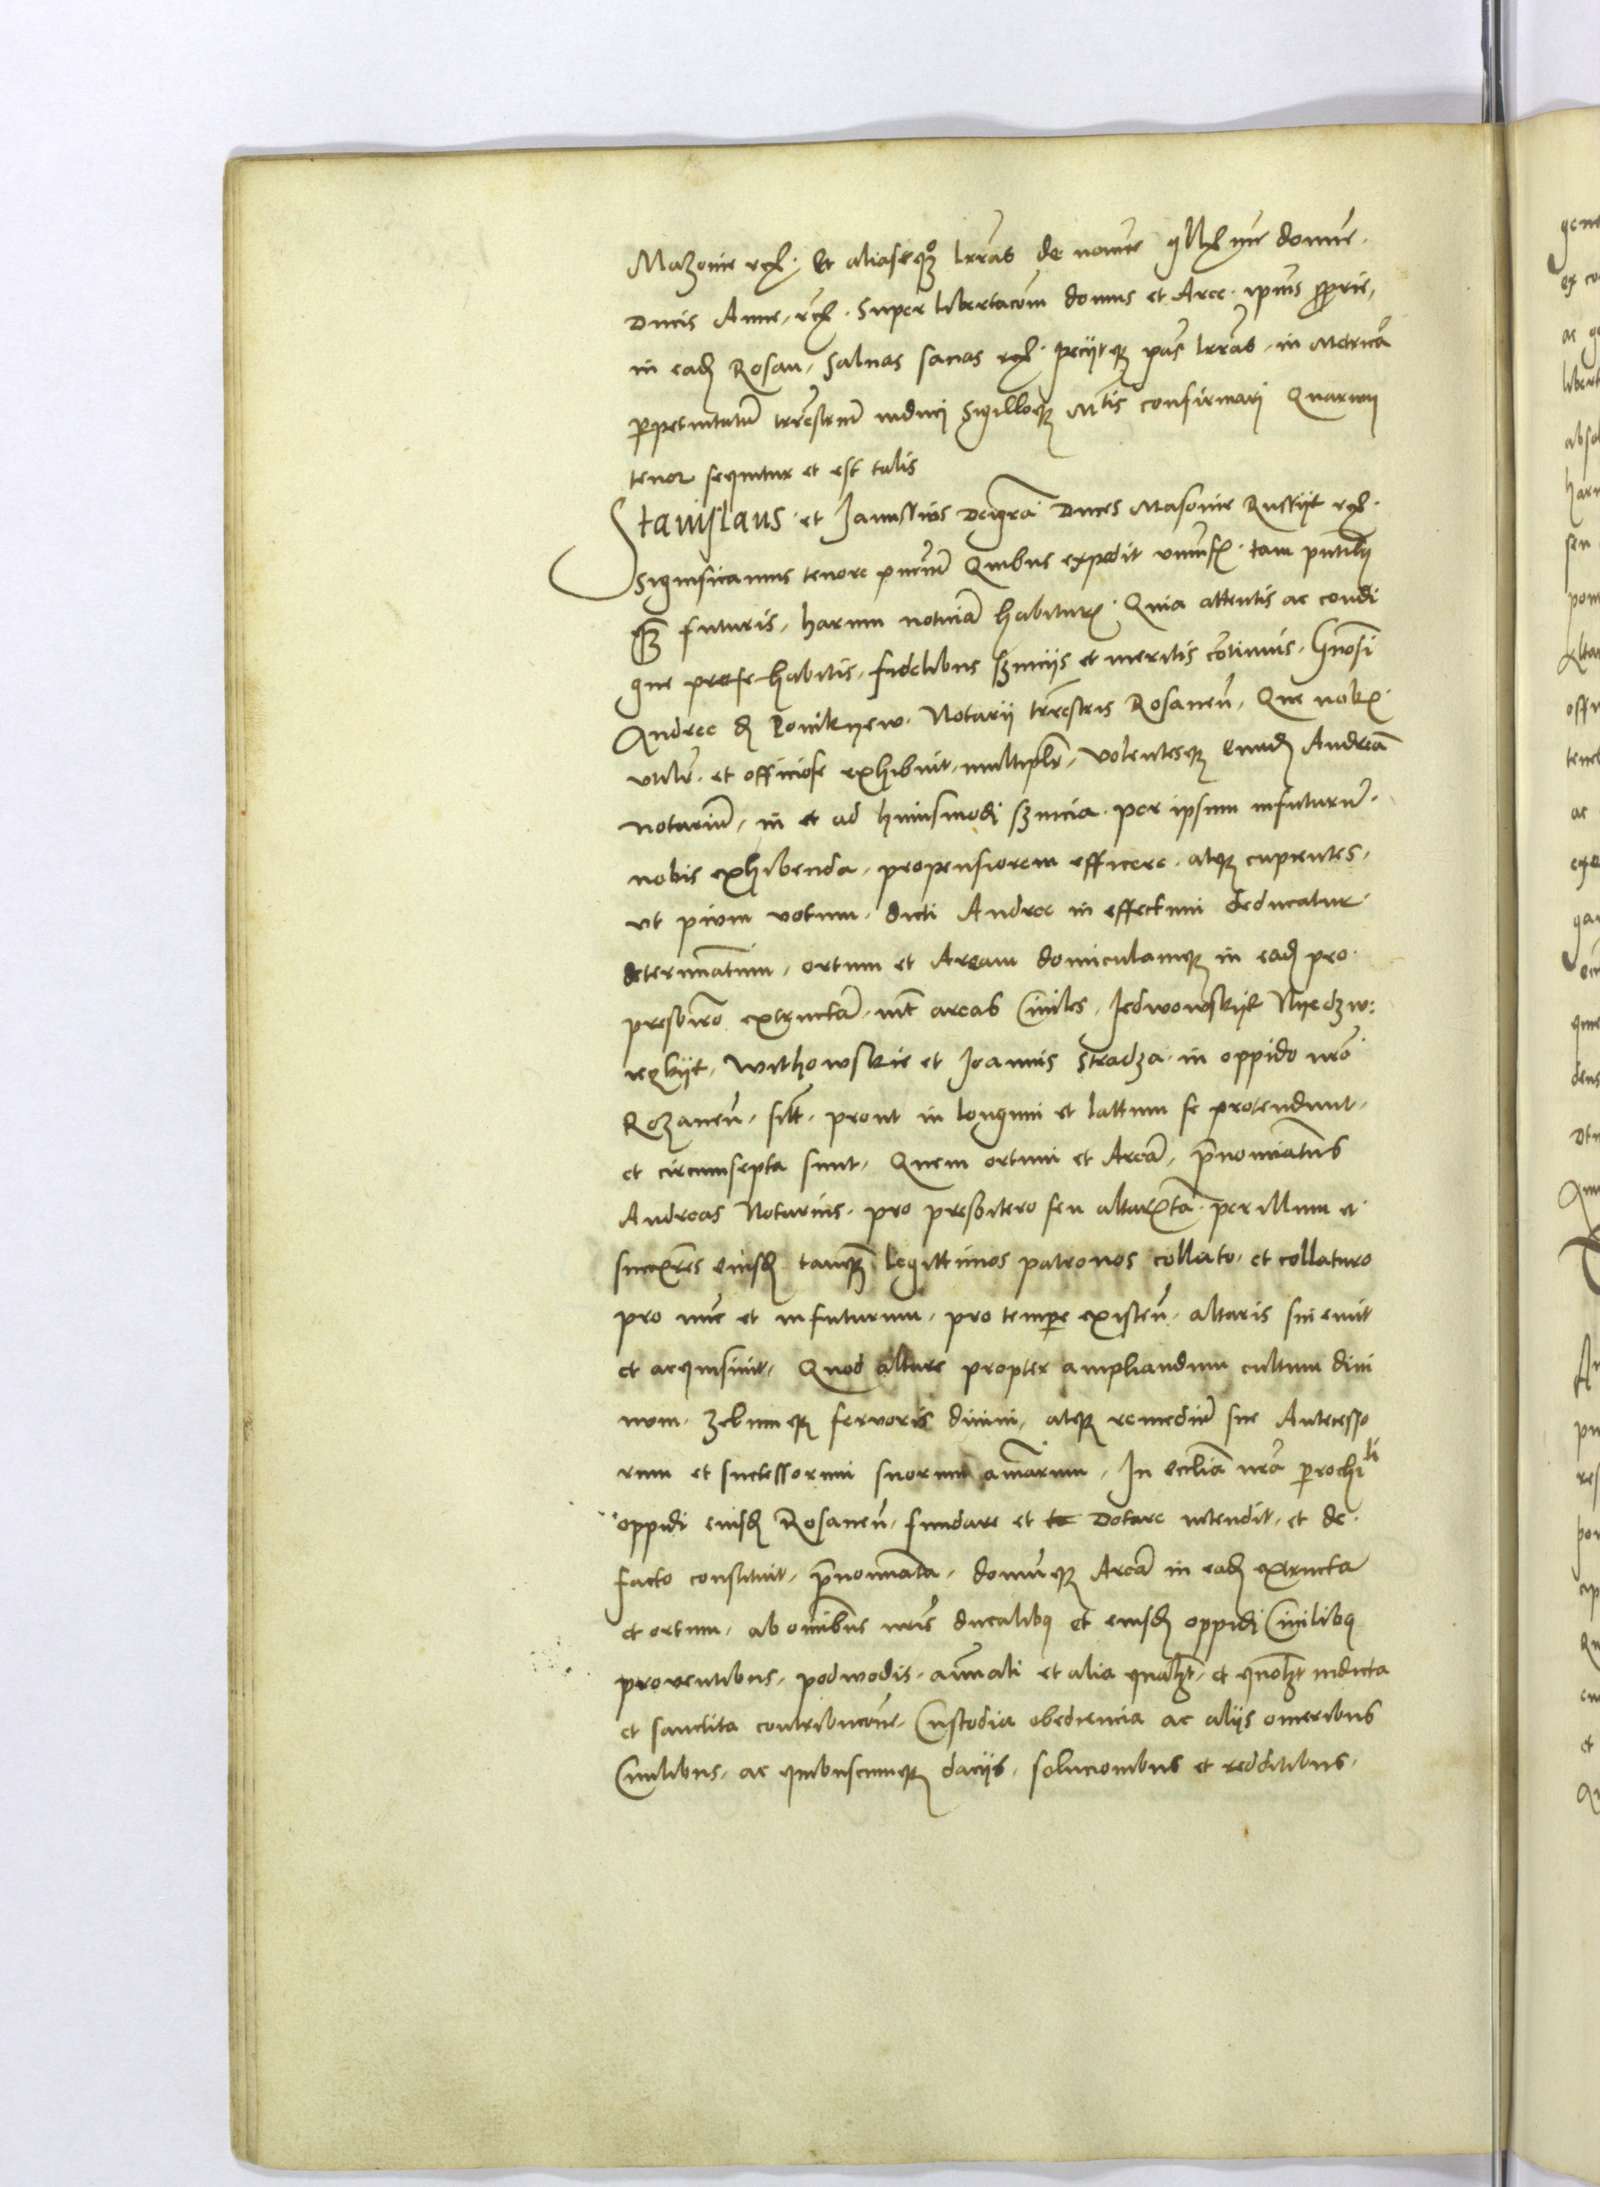 Mazouie rex. Et aliasseqz lrras de nouue gllxl nre domne.
Ducis Anne, rcl. Super libertacom domus et Aree. ipius proprie,
in eadz Rosan, saluas sanas rex. peciitqz pns lrras, in Metrica
perpetuitatu trrestrium induci Sigilloqz Mtis confirmari Quarum
tenor sequitur et est talis
Stanislaus et Janussius Dei gra Duces Masouie Russiie rcl.
Significamus tenore pncium Quibus expedit vniuersis. tam pntibus
qz futuris, harum noticia habituris. Quia attentis ac condi
gne prefe habitis, fidelibus seruiciis et meritis continuis. Gnosi
Andree de Ponikyew. Notarii trrestris Rosanen, Que nobis.
vtilr. et officiose exhibuit, multiplr, volentesqz eundz Andrea
notariu, in et ad huiusmodi seruicia. per ipsum infuturu.
nobis exhibenda, propensiorem efficere. atqz cupientes,
vt pium votum, dicti Andree in effectum deducatur.
determinatum, ortum et Aream domiculamqz in eadz pro.
presbitro extructa. int areas Ciuiles, Jedwowskiie Nyedzw:
yeczkiie, Withowskie et Joannis Stradza. in oppido nro
Rozanen, sitt. prout in longum et lattum se protendunt,
et circumsepta sunt, Quem ortum et Area, prenominatus
Andreas Notarius. pro presbitero seu altarista. per illum et
successores eiusdz tanqz legittimos patronos collato. et collaturo
pro nunc et infuturum. pro tempore existen. altaris sui emit
et acquisiuit, Quod altare propter ampliandum cultum diui
num. zelumqz feruoris diuini, atqz remediu sue Antecesso
rum et successorum suorum animarum, In ecclia nra parochili
oppidi eiusdz Rosanen, fundare et te dotare intendit, et de.
facto constituit, prenominata, domuqz Area in eadz extructa
et ortum, ab omibus nris ducalibq et eiusdz oppidi Ciuilibq
prouentibus, podwodis, annali et alia qualzt. et quolzt indicta
et sanctita contribucone. Custodia obediencia ac aliis oneribus
Ciuilibus, ac quibuscumqz daciis, solucionibus et redditibus.